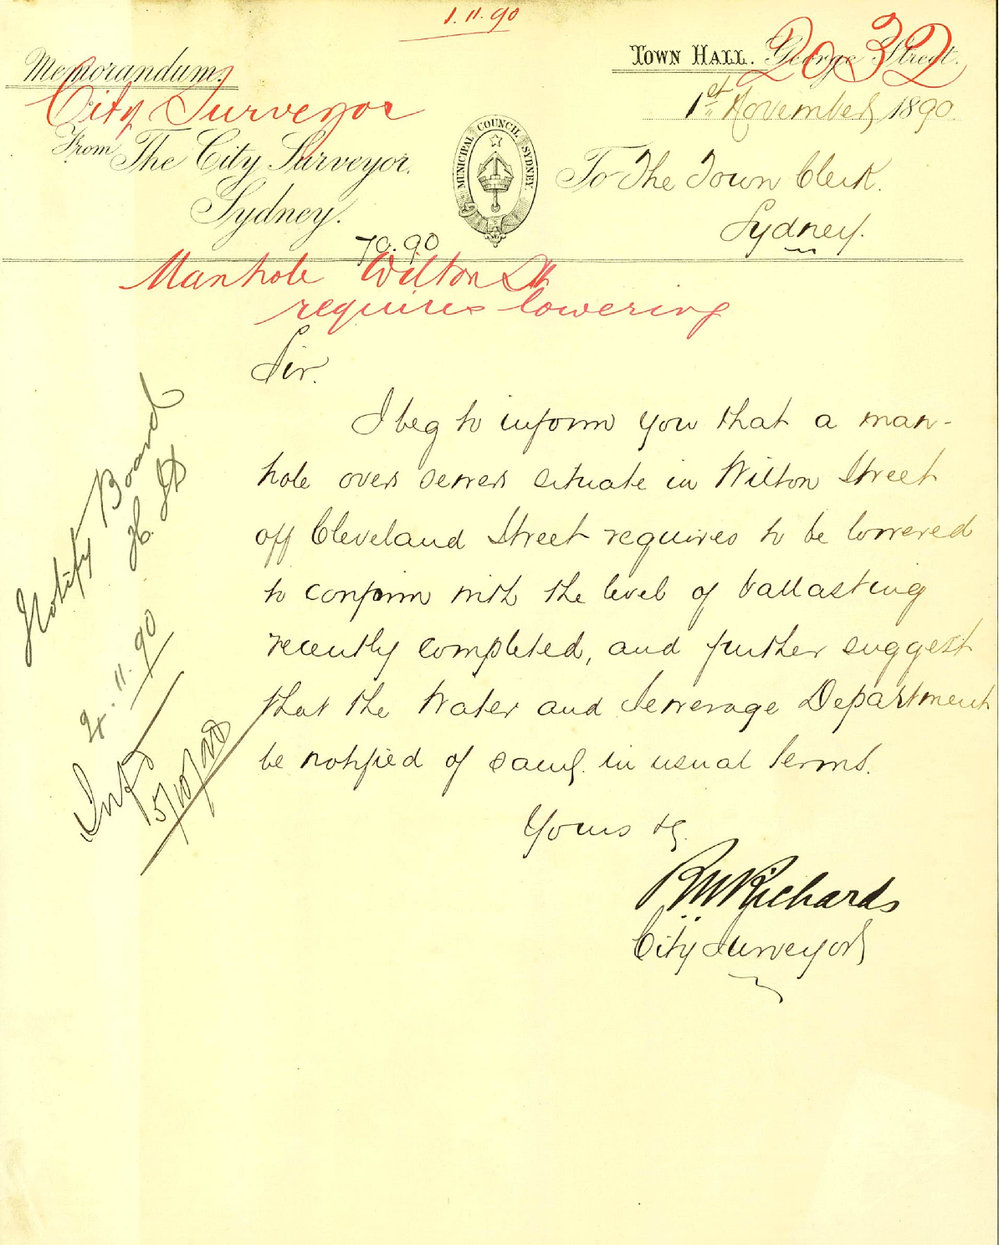 1.11.90
2032
Memorandum.
City Surveyor
TOWN HALL. George Street.
1st November, 1890.
From The City Surveyor.
Sydney.
MUNICIPAL COUNCIL SYDNEY.
To The Town Clerk.
Sydney.
70.90
Manhole Wilton St
requires lowering
Sir.
I beg to inform you that a man-
hole over sewer situate in Wilton Street
off Cleveland Street requires to be lowered
to conform with the level of ballasting
recently completed, and further suggest
that the Water and Sewerage Department
be notified of same in usual terms.
Yours &c.
RWRichards
City Surveyor
Notify Board
4.11.90